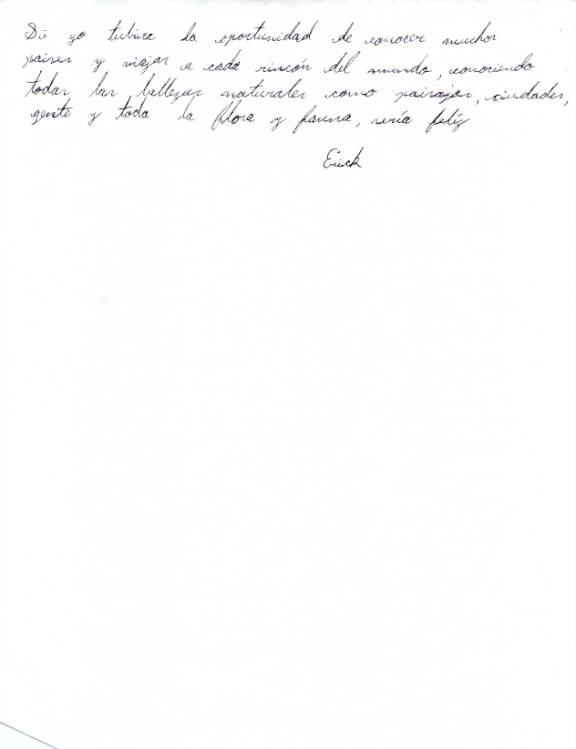 Si yo tubira la oportunidad de conocer muchos
paises y viajar a cada rincón del mundo, conociendo
todas las bellezas naturales como paisajes, ciudades,
gente y toda la flora y fauna, sería felíz
Erick